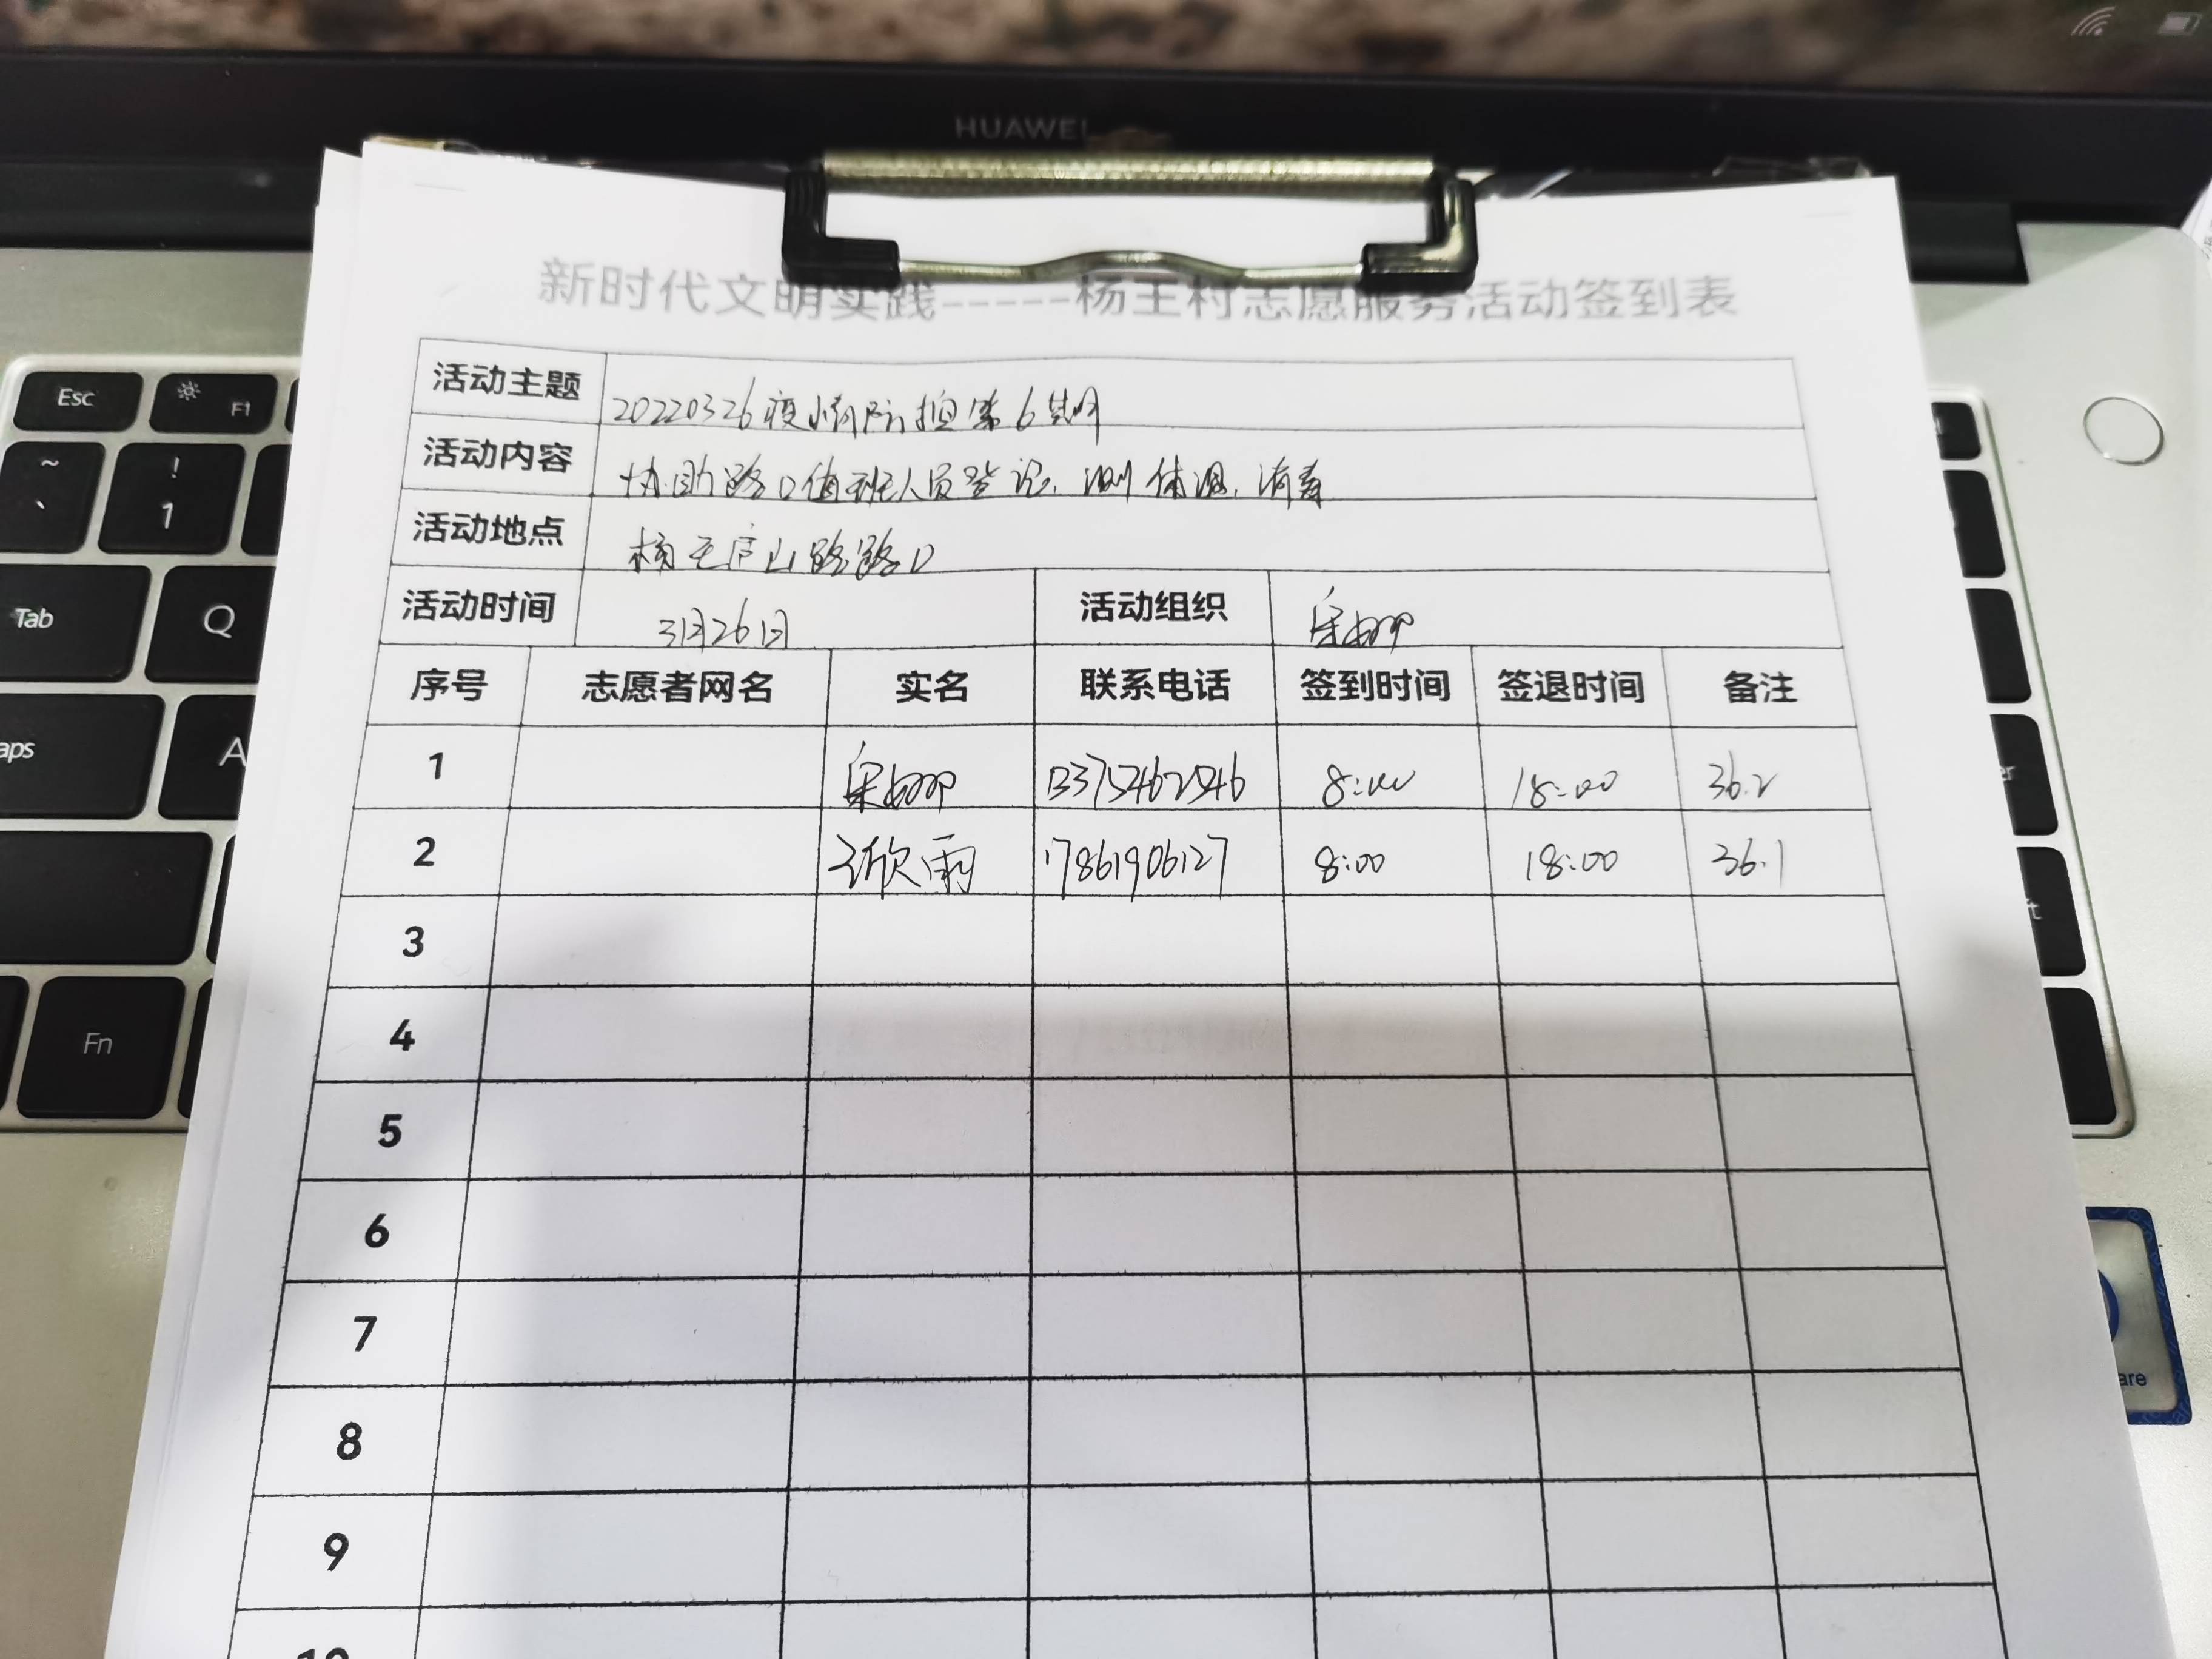 HUAWEI
新时代文明实践-----杨王村志愿服务活动签到表
活动主题 20220326疫情防控第6期
活动内容 协助路口值班人员登记、测体温、消毒
活动地点 杨王庐山路路口
活动时间 3月26日 活动组织
序号 志愿者网名 实名 联系电话 签到时间 签退时间 备注
1 13375462546 8:00 18:00 36.2
2 欣雨 17861906127 8:00 18:00 36.1
3
4
5
6
7
8
9
10
Esc F1
~ ` ! 1
Tab Q
aps A
Fn
er
ft
are